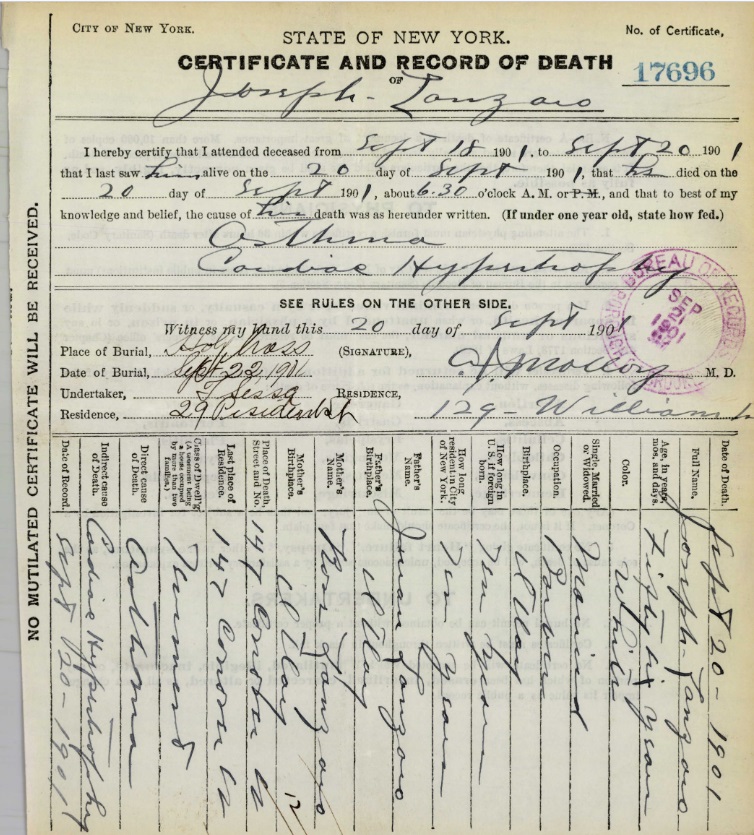 CITY OF NEW YORK.
STATE OF NEW YORK.
No. of Certificate,
CERTIFICATE AND RECORD OF DEATH
17696
OF
Joseph - Lanzaro
I hereby certify that I attended deceased from Sept 18 1901, to Sept 20 1901
that I last saw him alive on the 20 day of Sept 1901, that he died on the
20 day of Sept 1901, about 6.30 o'clock A. M. or P. M., and that to best of my
knowledge and belief, the cause of his death was as hereunder written. (If under one year old, state how fed.)
Asthma
Cardiac Hypertrophy
SEE RULES ON THE OTHER SIDE.
Witness my hand this 20 day of Sept 1901
Place of Burial, Holy Cross (SIGNATURE), Molloy M. D.
Date of Burial, Sept 22, 1901
Undertaker, F Sessa RESIDENCE,
Residence, 29 President St 129 - William
BUREAU OF RECORDS
SEP 21 1901
BROOKLYN
NO MUTILATED CERTIFICATE WILL BE RECEIVED.
Date of Death. Sept 20 - 1901
Full Name. Joseph - Lanzaro
Age, in years, mos. and days. Fifty six years
Color. White
Single, Married or Widowed. Married
Occupation.
Birthplace. Italy
How long in U. S. if foreign born. Ten years
How long resident in City of New York. Ten years
Father's Name. Lanzaro
Father's Birthplace. Italy
Mother's Name. Rosa Lanzaro
Mother's Birthplace. Italy
12
Place of Death, Street and No. 147 Conover
Last place of Residence. 147 Conover
Class of Dwell'g (A tenement being a house occupied by more than two families.) Tenement
Direct cause of Death. Asthma
Indirect cause of Death. Cardiac Hypertrophy
Date of Record. Sept 20 - 1901